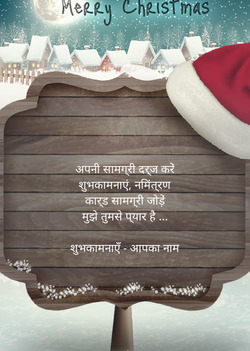 Merry Christmas
अपनी सामग्री दर्ज करें
शुभकामनाएं, नमिंत्रण
कार्ड सामग्री जोड़ें
मुझे तुमसे प्यार है ...
शुभकामनाएँ - आपका नाम